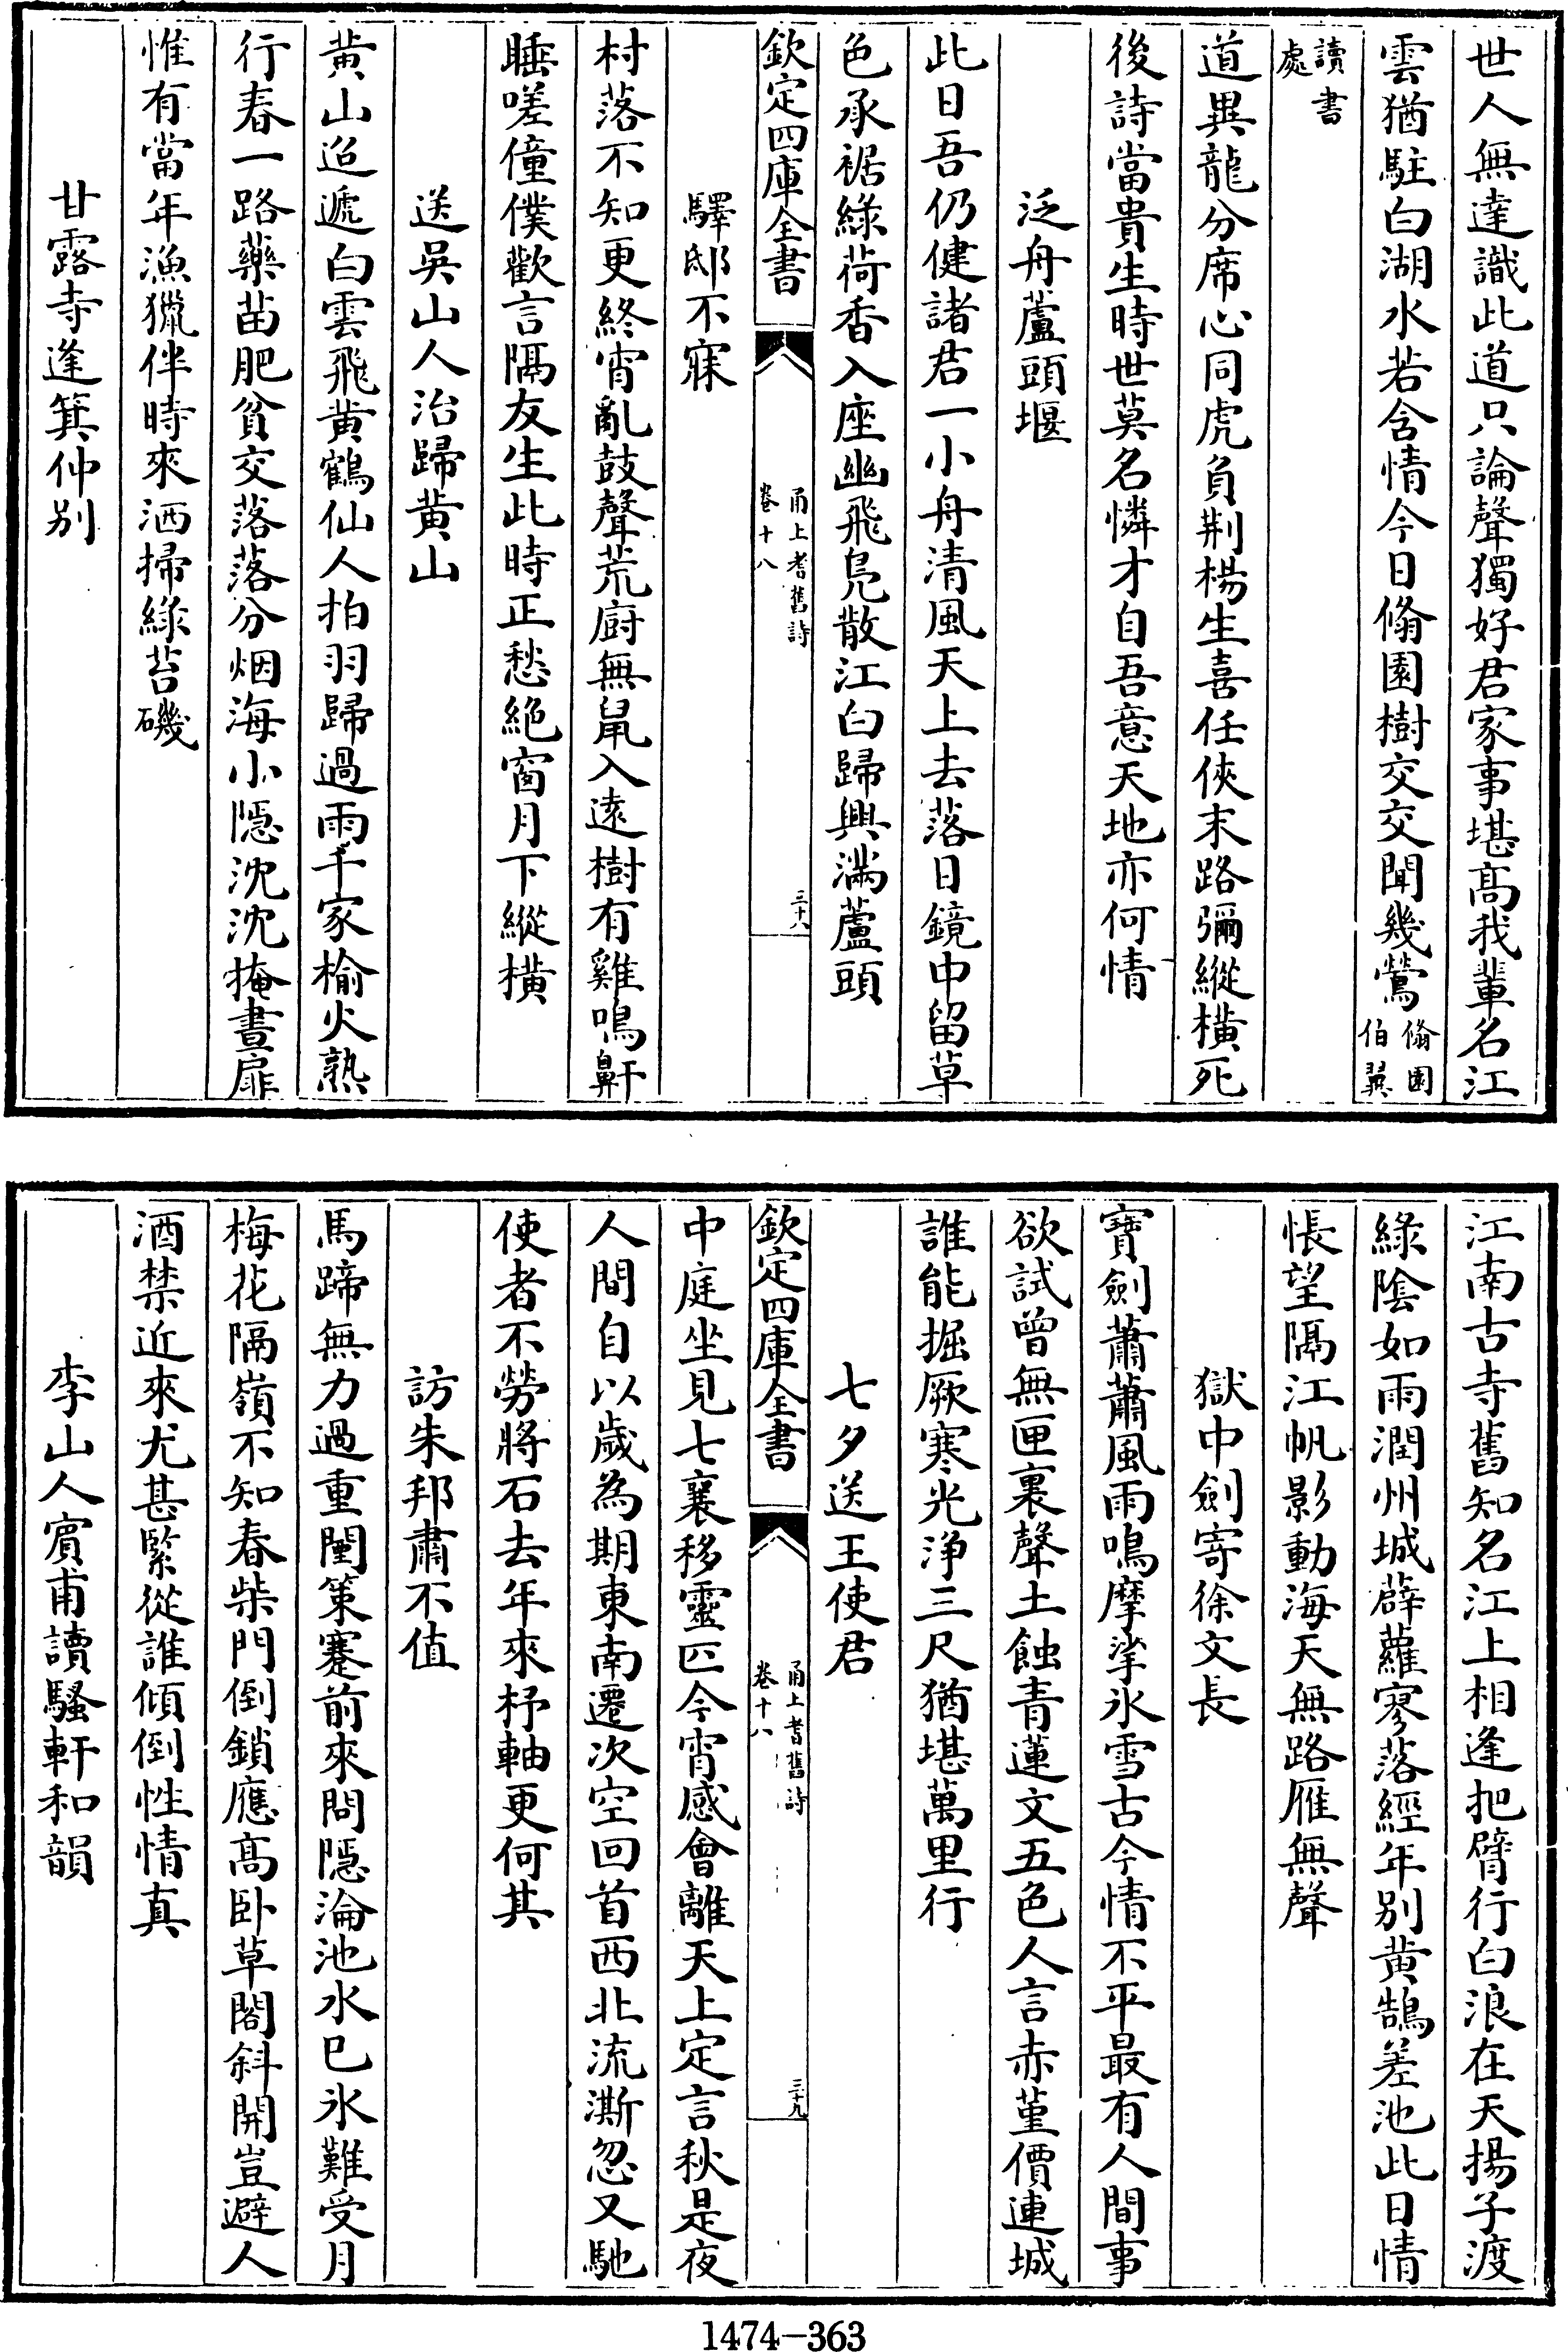 世人無達識此道只論聲獨好君家事堪髙我輩名江
雲猶駐白湖水若含情今日脩園樹交交聞幾鶯脩園伯翼
讀書處
道異龍分席心同虎負荆楊生喜任俠末路彌縱橫死
後詩當貴生時世莫名憐才自吾意天地亦何情
泛舟蘆頭堰
此日吾仍健諸君一小舟清風天上去落日鏡中留草
色承裾綠荷香入座幽飛鳬散江白歸興滿蘆頭
欽定四庫全書
甬上耆舊詩
卷十八
三十八
驛邸不寐
村落不知更終宵亂鼓聲荒廚無鼠入逺樹有雞鳴鼾
睡嗟僮僕歡言隔友生此時正愁絶窗月下縱橫
送吳山人治歸黄山
黄山迢遞白雲飛黄鶴仙人拍羽歸過雨千家榆火熟
行春一路藥苗肥貧交落落分烟海小隱沈沈掩晝扉
惟有當年漁獵伴時來洒掃綠苔磯
甘露寺逢箕仲别
江南古寺舊知名江上相逢把臂行白浪在天揚子渡
綠陰如雨潤州城薜蘿寥落經年别黄鵠差池此日情
悵望隔江帆影動海天無路雁無聲
獄中劍寄徐文長
寶劍蕭蕭風雨鳴摩挲氷雪古今情不平最有人間事
欲試曾無匣裏聲土蝕青蓮文五色人言赤堇價連城
誰能掘厥寒光淨三尺猶堪萬里行
七夕送王使君
欽定四庫全書
甬上耆舊詩
卷十八
三十九
中庭坐見七襄移靈匹今宵感會離天上定言秋是夜
人間自以歲為期東南遷次空回首西北流澌忽又馳
使者不勞將石去年來杼軸更何其
訪朱邦肅不值
馬蹄無力過重闉策蹇前來問隱淪池水已氷難受月
梅花隔嶺不知春柴門倒鎖應髙卧草閣斜開豈避人
酒禁近來尤甚緊從誰傾倒性情真
李山人賓甫讀騷軒和韻
1474-363